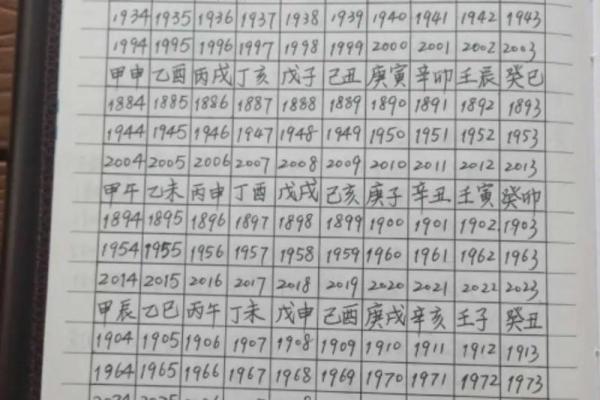 1934 1935 1936 1937 1938 1939 1940 1941 1942 1943
1994 1995 1996 1997 1998 1999 2000 2001 2002 2003
甲申 乙酉 丙戌 丁亥 戊子 己丑 庚寅 辛卯 壬辰 癸巳
1884 1885 1886 1887 1888 1889 1890 1891 1892 1893
1944 1945 1946 1947 1948 1949 1950 1951 1952 1953
2004 2005 2006 2007 2008 2009 2010 2011 2012 2013
甲午 乙未 丙申 丁酉 戊戌 己亥 庚子 辛丑 壬寅 癸卯
1894 1895 1896 1897 1898 1899 1900 1901 1902 1903
1954 1955 1956 1957 1958 1959 1960 1961 1962 1963
2014 2015 2016 2017 2018 2019 2020 2021 2022 2023
甲辰 乙巳 丙午 丁未 戊申 己酉 庚戌 辛亥 壬子 癸丑
1904 1905 1906 1907 1908 1909 1910 1911 1912 1913
1964 1965 1966 1967 1968 1969 1970 1971 1972 1973